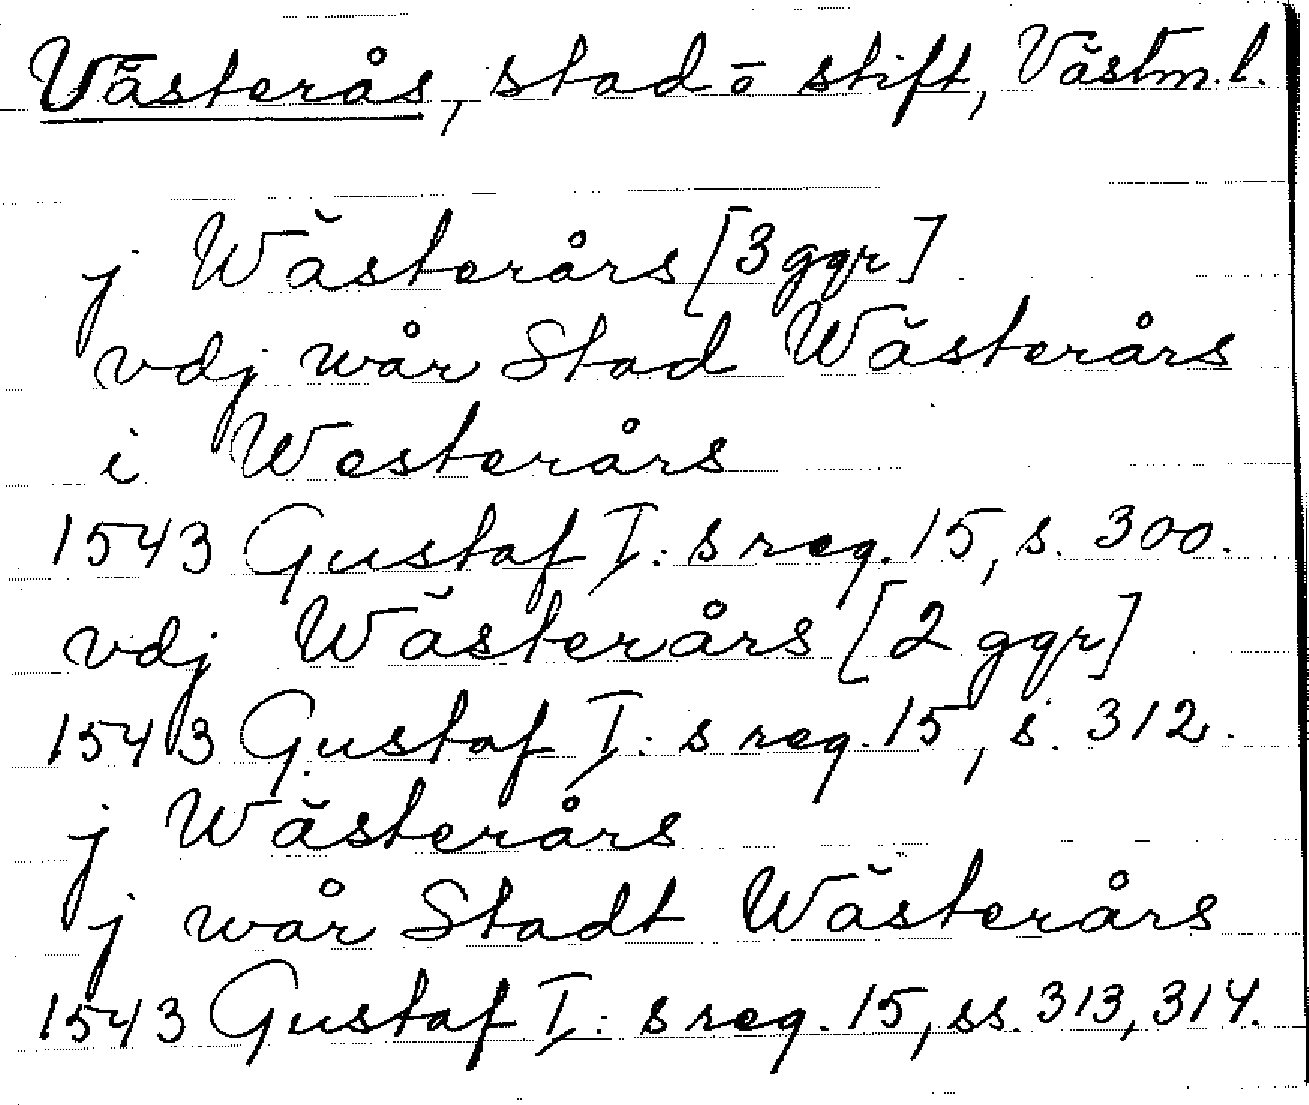 Västerås, stad o stift, Västm. l.
j Wästerårs [3 ggr]
vdj wår Stad Wästerårs
i Westerårs
1543 Gustaf I: s reg. 15, s. 300.
vdj Wästerårs [2 ggr]
1543 Gustaf I: s reg. 15, s. 312.
j Wästerårs
j wår Stadt Wästerårs
1543 Gustaf I: s reg. 15, ss. 313, 314.